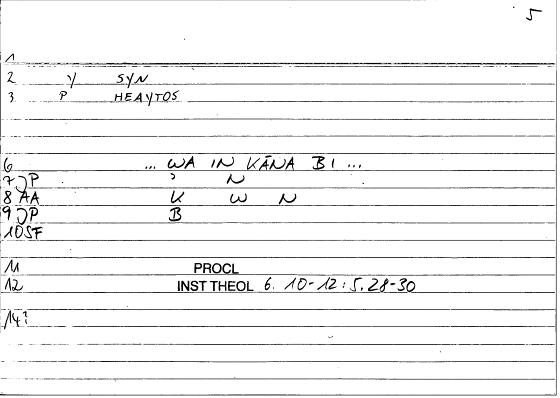 5
1
2 y SYN
3 P HEAYTOS
6 ... WA IN KĀNA BI ...
7 JP ʾ N
8 AA K W N
9 JP B
10 SF
11 PROCL
12 INST THEOL 6. 10-12 : 5, 28-30
14?